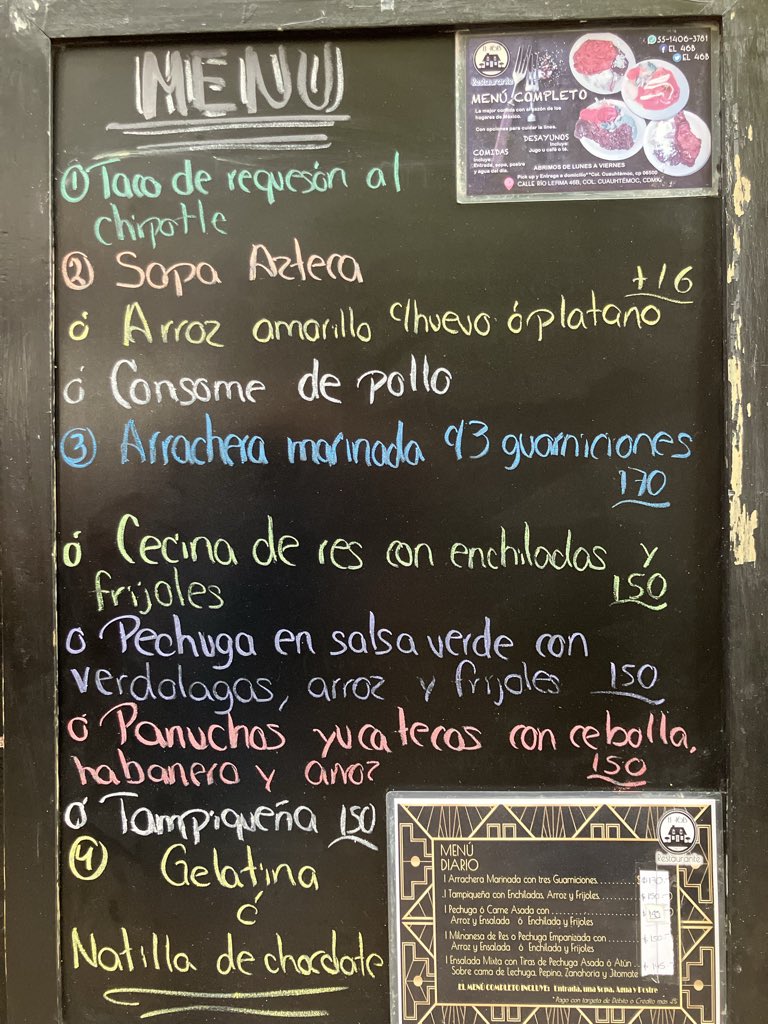 MENU
① Taco de requesón al
chipotle
② Sopa Azteca
+16
ó Arroz amarillo c/huevo ó platano
ó Consome de pollo
③ Arrachera marinada c/3 guarniciones
170
ó Cecina de res con enchiladas y
frijoles 150
ó Pechuga en salsa verde con
verdolagas, arroz y frijoles 150
ó Panuchos yucatecos con cebolla,
habanero y arroz 150
ó Tampiqueña 150
④ Gelatina
ó
Natilla de chocolate
El 46B
Restaurante
55-1406-3781
EL 46B
EL 46B
MENÚ COMPLETO
La mejor comida con el sazón de los
hogares de México.
Con opciones para cuidar la línea.
DESAYUNOS
Incluye:
Jugo o café o té.
COMIDAS
Incluye:
Entrada, sopa, postre
y agua del día.
ABRIMOS DE LUNES A VIERNES
Pick up y Entrega a domicilio**Col. Cuauhtémoc, cp 06500
CALLE RÍO LERMA 46B, COL. CUAUHTÉMOC, CDMX
El 46B
Restaurante
MENÚ
DIARIO
1 Arrachera Marinada con tres Guarniciones
1 Tampiqueña con Enchiladas, Arroz y Frijoles $150
1 Pechuga ó Carne Asada con
Arroz y Ensalada ó Enchilada y Frijoles
1 Milnanesa de Res o Pechuga Empanizada con $150
Arroz y Ensalada ó Enchilada y Frijoles
1 Ensalada Mixta con Tiras de Pechuga Asada ó Atún $145
Sobre cama de Lechuga, Pepino, Zanahoria y Jitomate
EL MENÚ COMPLETO INCLUYE: Entrada, una Sopa, Agua y Postre
*Pago con tarjeta de Débito o Crédito más